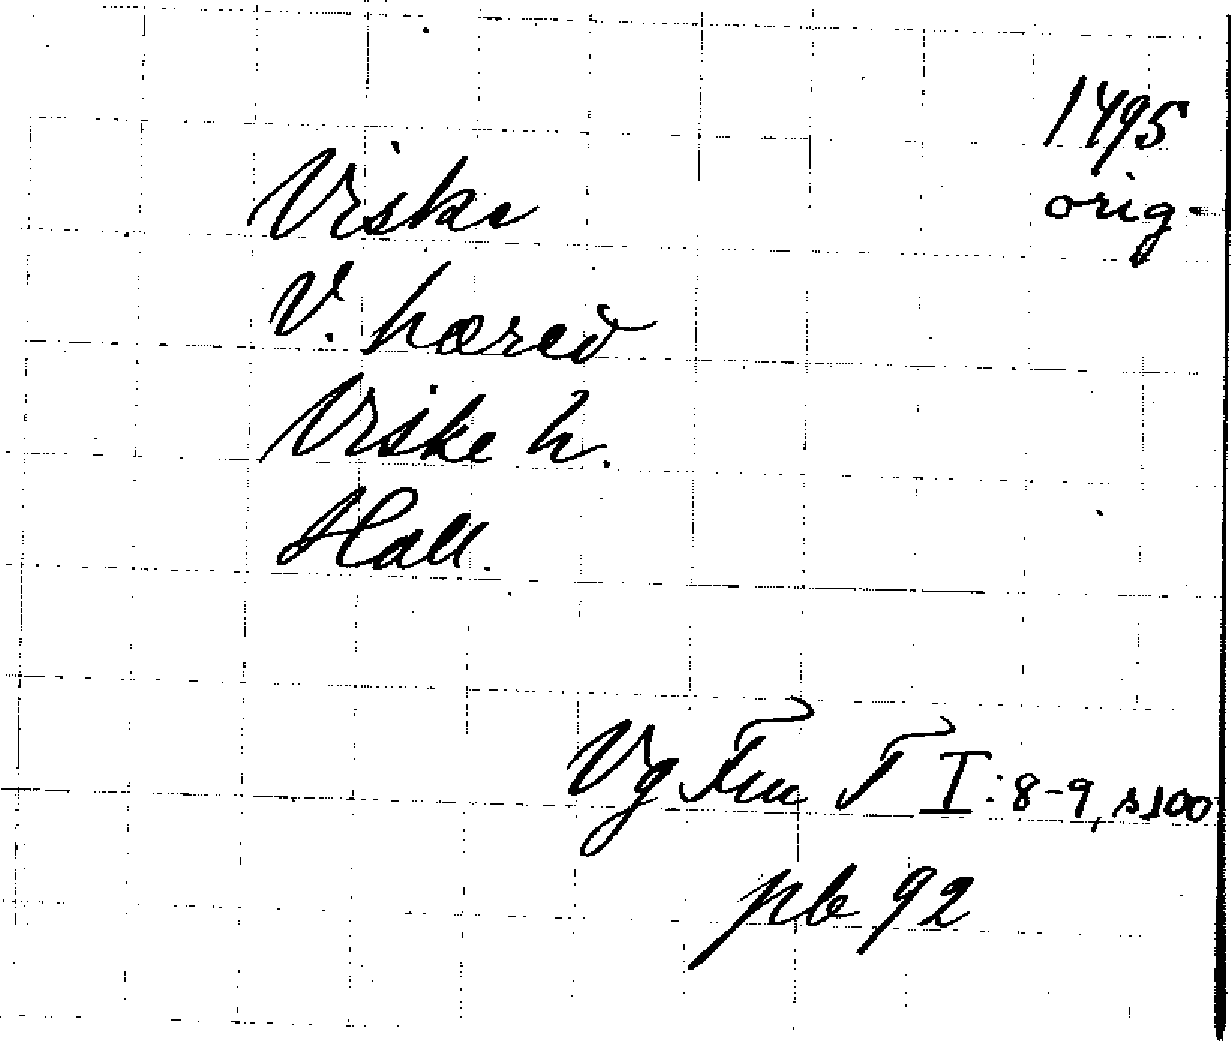 1495
orig-
Viske
V. hæred
Viske h.
Hall.
Vg Fm T I:8-9, s 100
pb 92